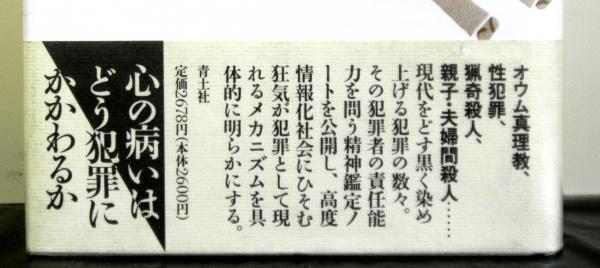 オウム真理教、
性犯罪、
猟奇殺人、
親子・夫婦間殺人……
現代をどす黒く染め
上げる犯罪の数々。
その犯罪者の責任能
力を問う精神鑑定ノ
ートを公開し、高度
情報化社会にひそむ
狂気が犯罪として現
れるメカニズムを具
体的に明らかにする。
青土社
定価2678円(本体2600円)
心の病いは
どう犯罪に
かかわるか